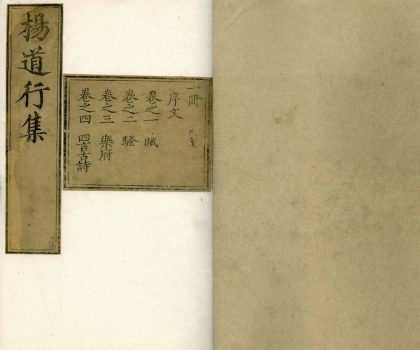 楊道行集
一冊
序文
卷之一 賦
卷之二 騷
卷之三 樂府
卷之四 四言古詩